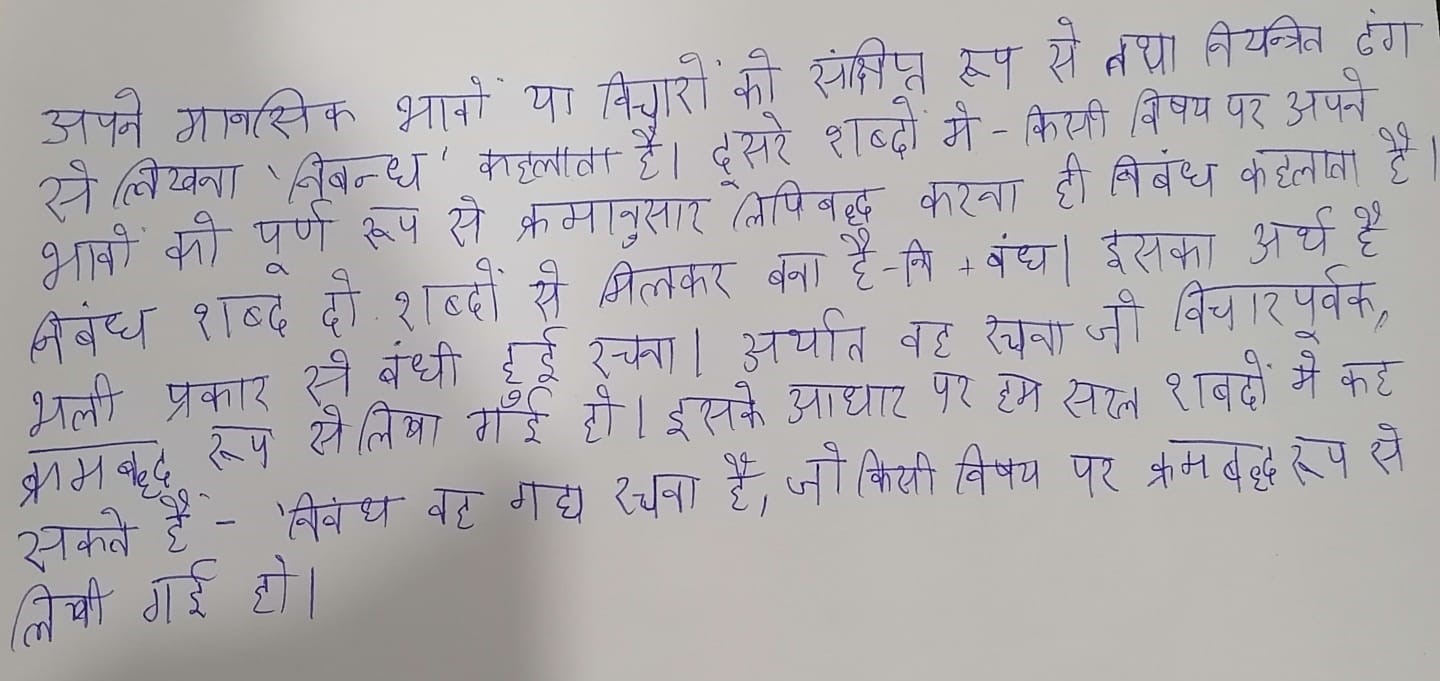 अपने मानसिक भावों या विचारों को संक्षिप्त रूप से तथा नियन्त्रित ढंग
से लिखना 'निबन्ध' कहलाता है। दूसरे शब्दों मे - किसी विषय पर अपने
भावों को पूर्ण रूप से क्रमानुसार लिपिबद्ध करना ही निबंध कहलाता है।
निबंध शब्द दो शब्दों से मिलकर बना है - नि + बंध। इसका अर्थ है
भली प्रकार से बंधी हुई रचना। अर्थात वह रचना जो विचारपूर्वक,
क्रमबद्ध रूप से लिखा गई हो। इसके आधार पर हम सरल शबदों मे कह
सकते हैं - 'निबंध वह गद्य रचना है, जो किसी विषय पर क्रमबद्ध रूप से
लिखी गई हो।